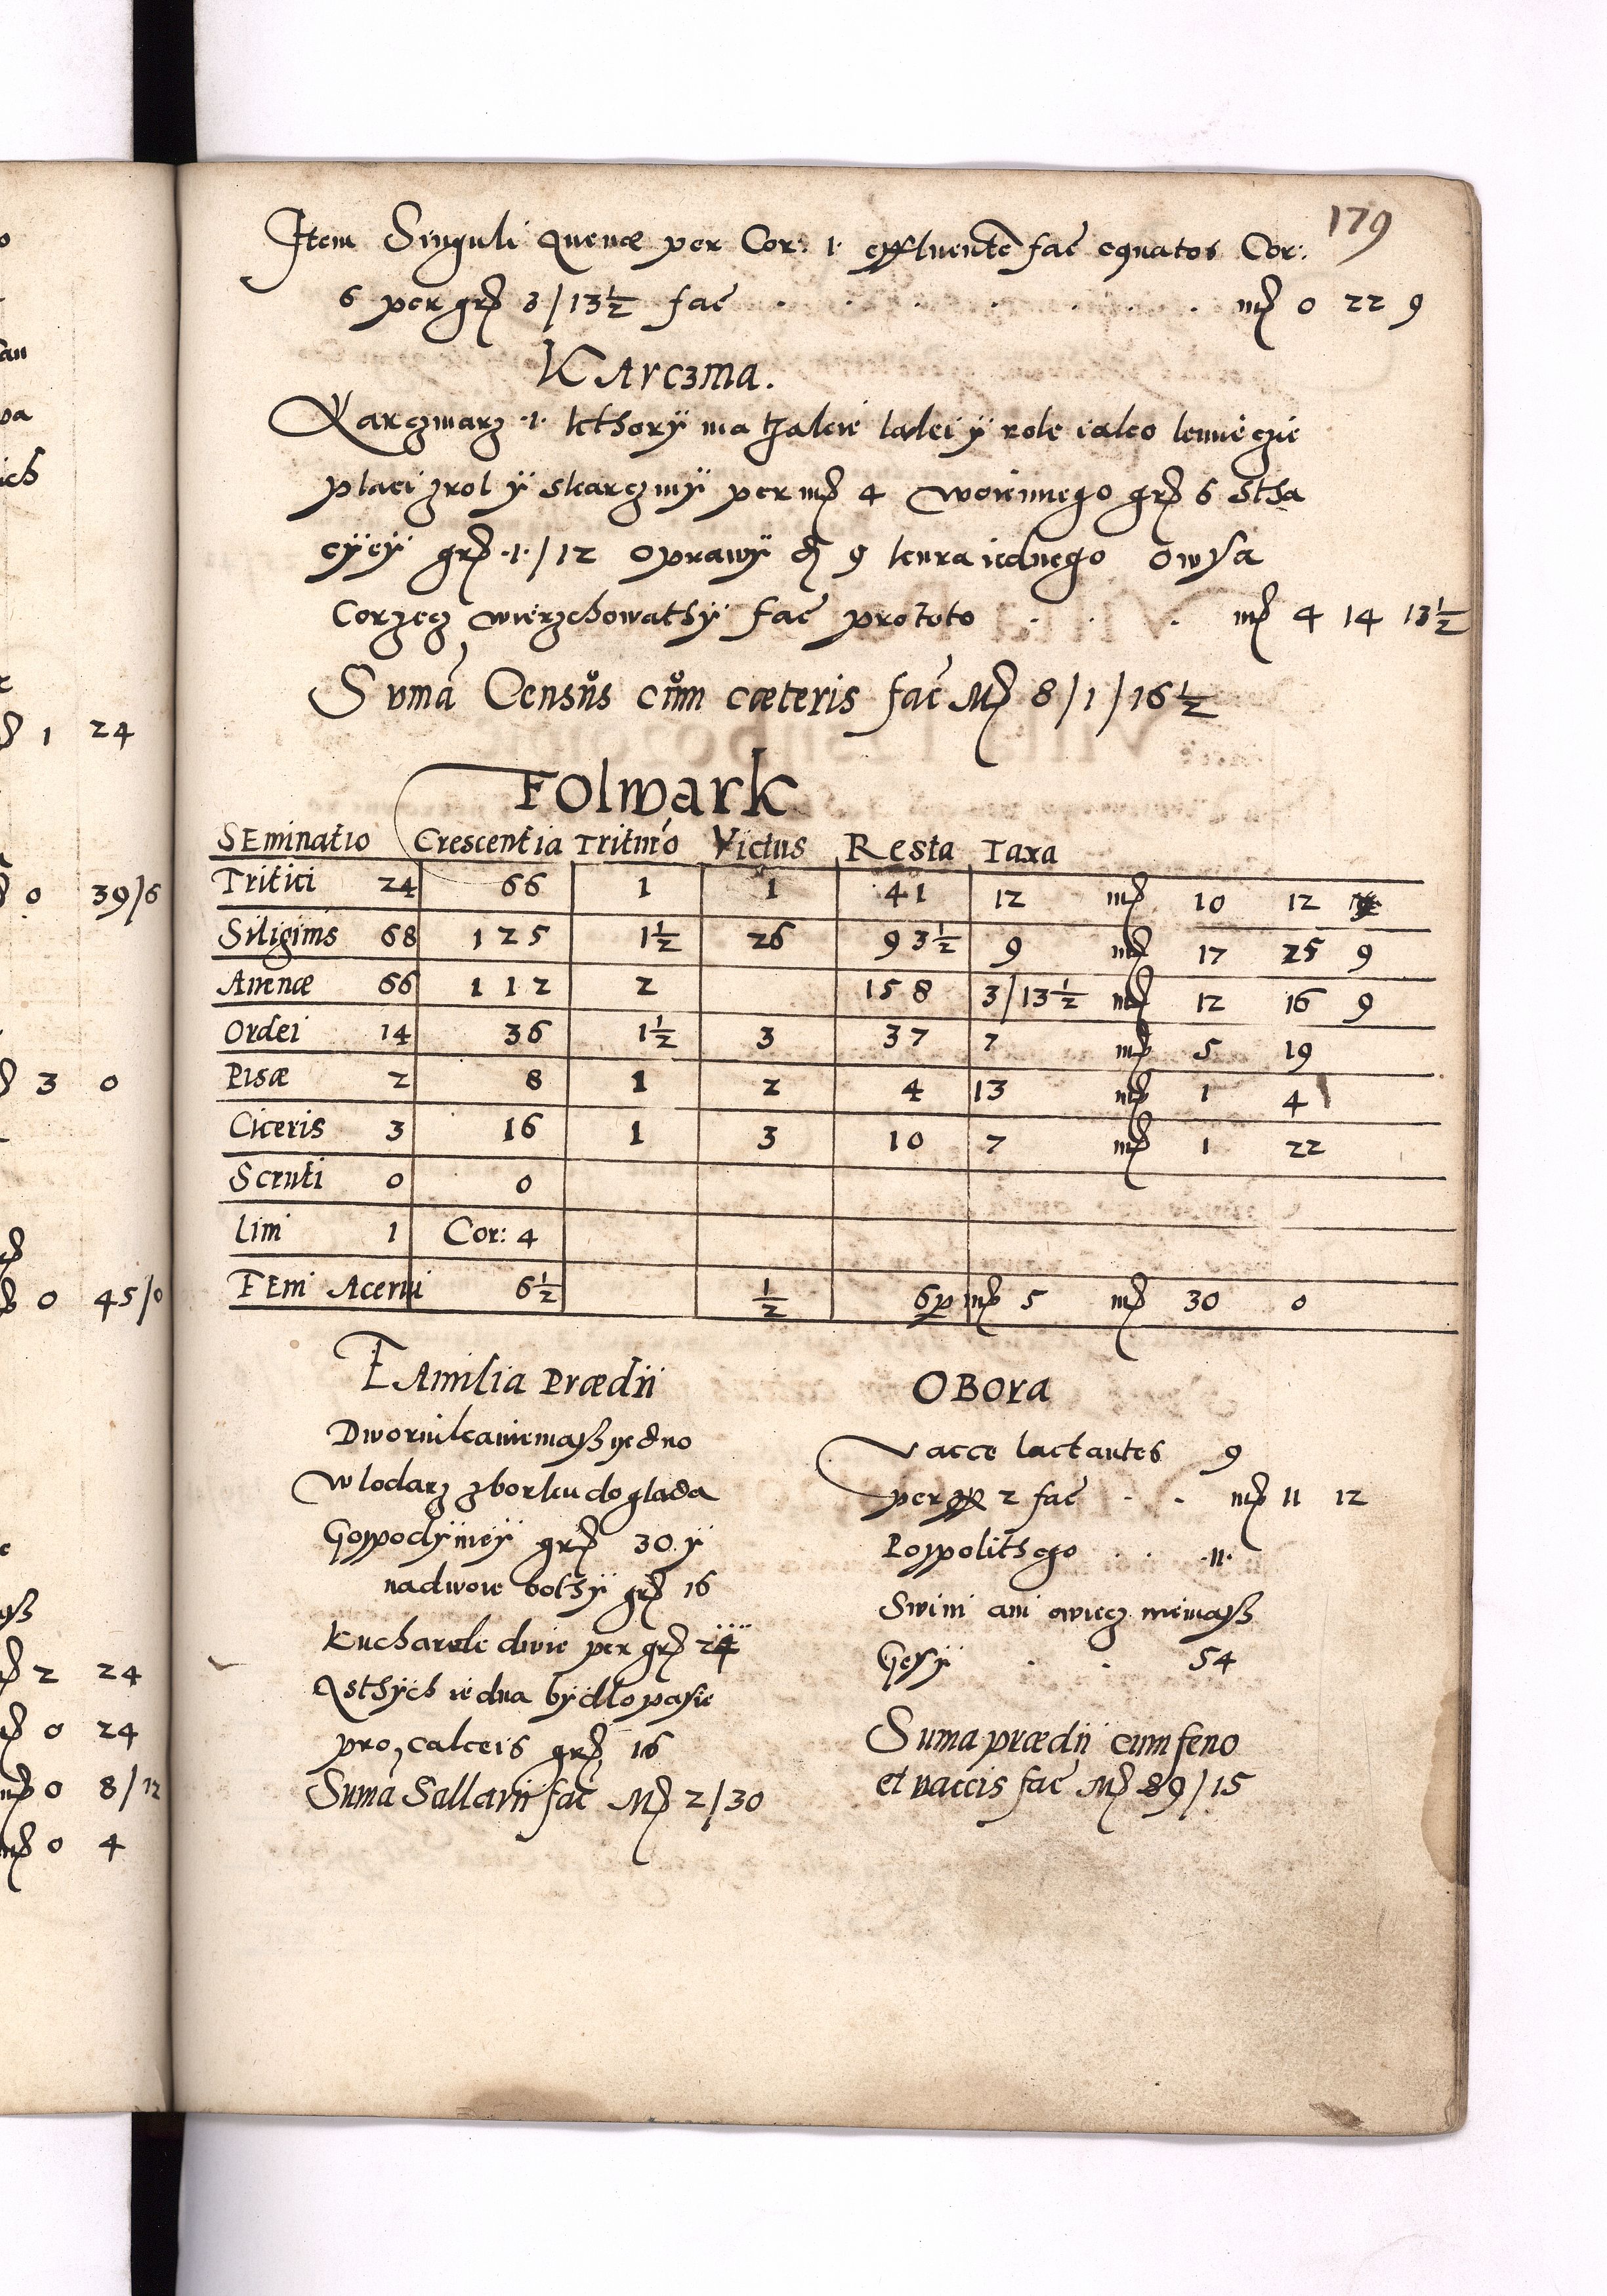 179
Item Singuli Auenæ per Cor: 1 effluentē fac̄ equatos Cor:
6 per grꝭ 3/13½ fac̄ . . . . . . . mꝭ 0 22 9
KArczma.
Karczmarz ·1· kthorÿ ma takie laki ÿ role iako kmieczie
placi zrol ÿ skarczmÿ per mꝭ 4 woiennego grꝭ 6 Stha
cÿeÿ grꝭ ·1·/12 oprawÿ ꝺ 9 kura iednego owsa
Corzecz wierzchowathÿ fac̄ pro toto . . . mꝭ 4 14 13½
Sumā Censůs cům cæteris fac̄ Mꝭ 8/1/16½
Folwark
SEminatio Crescentia Triturō Victus Resta Taxa
Tritici 24 66 1 1 41 12 mꝭ 10 12
Siliginis 68 125 1½ 26 93½ 9 mꝭ 17 25 9
Auenæ 66 112 2 158 3/13½ mꝭ 12 16 9
Ordei 14 36 1½ 3 37 7 mꝭ 5 19
Pisæ 2 8 1 2 4 13 mꝭ 1 4
Ciceris 3 16 1 3 10 7 mꝭ 1 22
Scruti 0 0
Lini 1 Cor: 4
FEni Acerui 6½ ½ 6 p mꝭ 5 mꝭ 30 0
FAmilia Prædii
Dwornika niemasz jedno
wlodarz zborku doglada
Gospodÿneÿ grꝭ 30 ÿ
nadwoie bothÿ grꝭ 16
Kucharke dwie per grꝭ 24
Ysthÿch iedna bÿdlo pasie
pro calceis grꝭ 16
Sumā Sallarii fac̄ Mꝭ 2/30
OBora
Vacce lactantes 9
per 2 fac̄ . . mꝭ 11 12
Pospolithego . . ·11·
Swini ani owiecz niemasz
Gesÿ . . 54
Suma prædii cum feno
et vaccis fac̄ Mꝭ 89/15
1 24
0 39/6
3 0
0 45/0
2 24
0 24
mꝭ 0 8/12
mꝭ 0 4